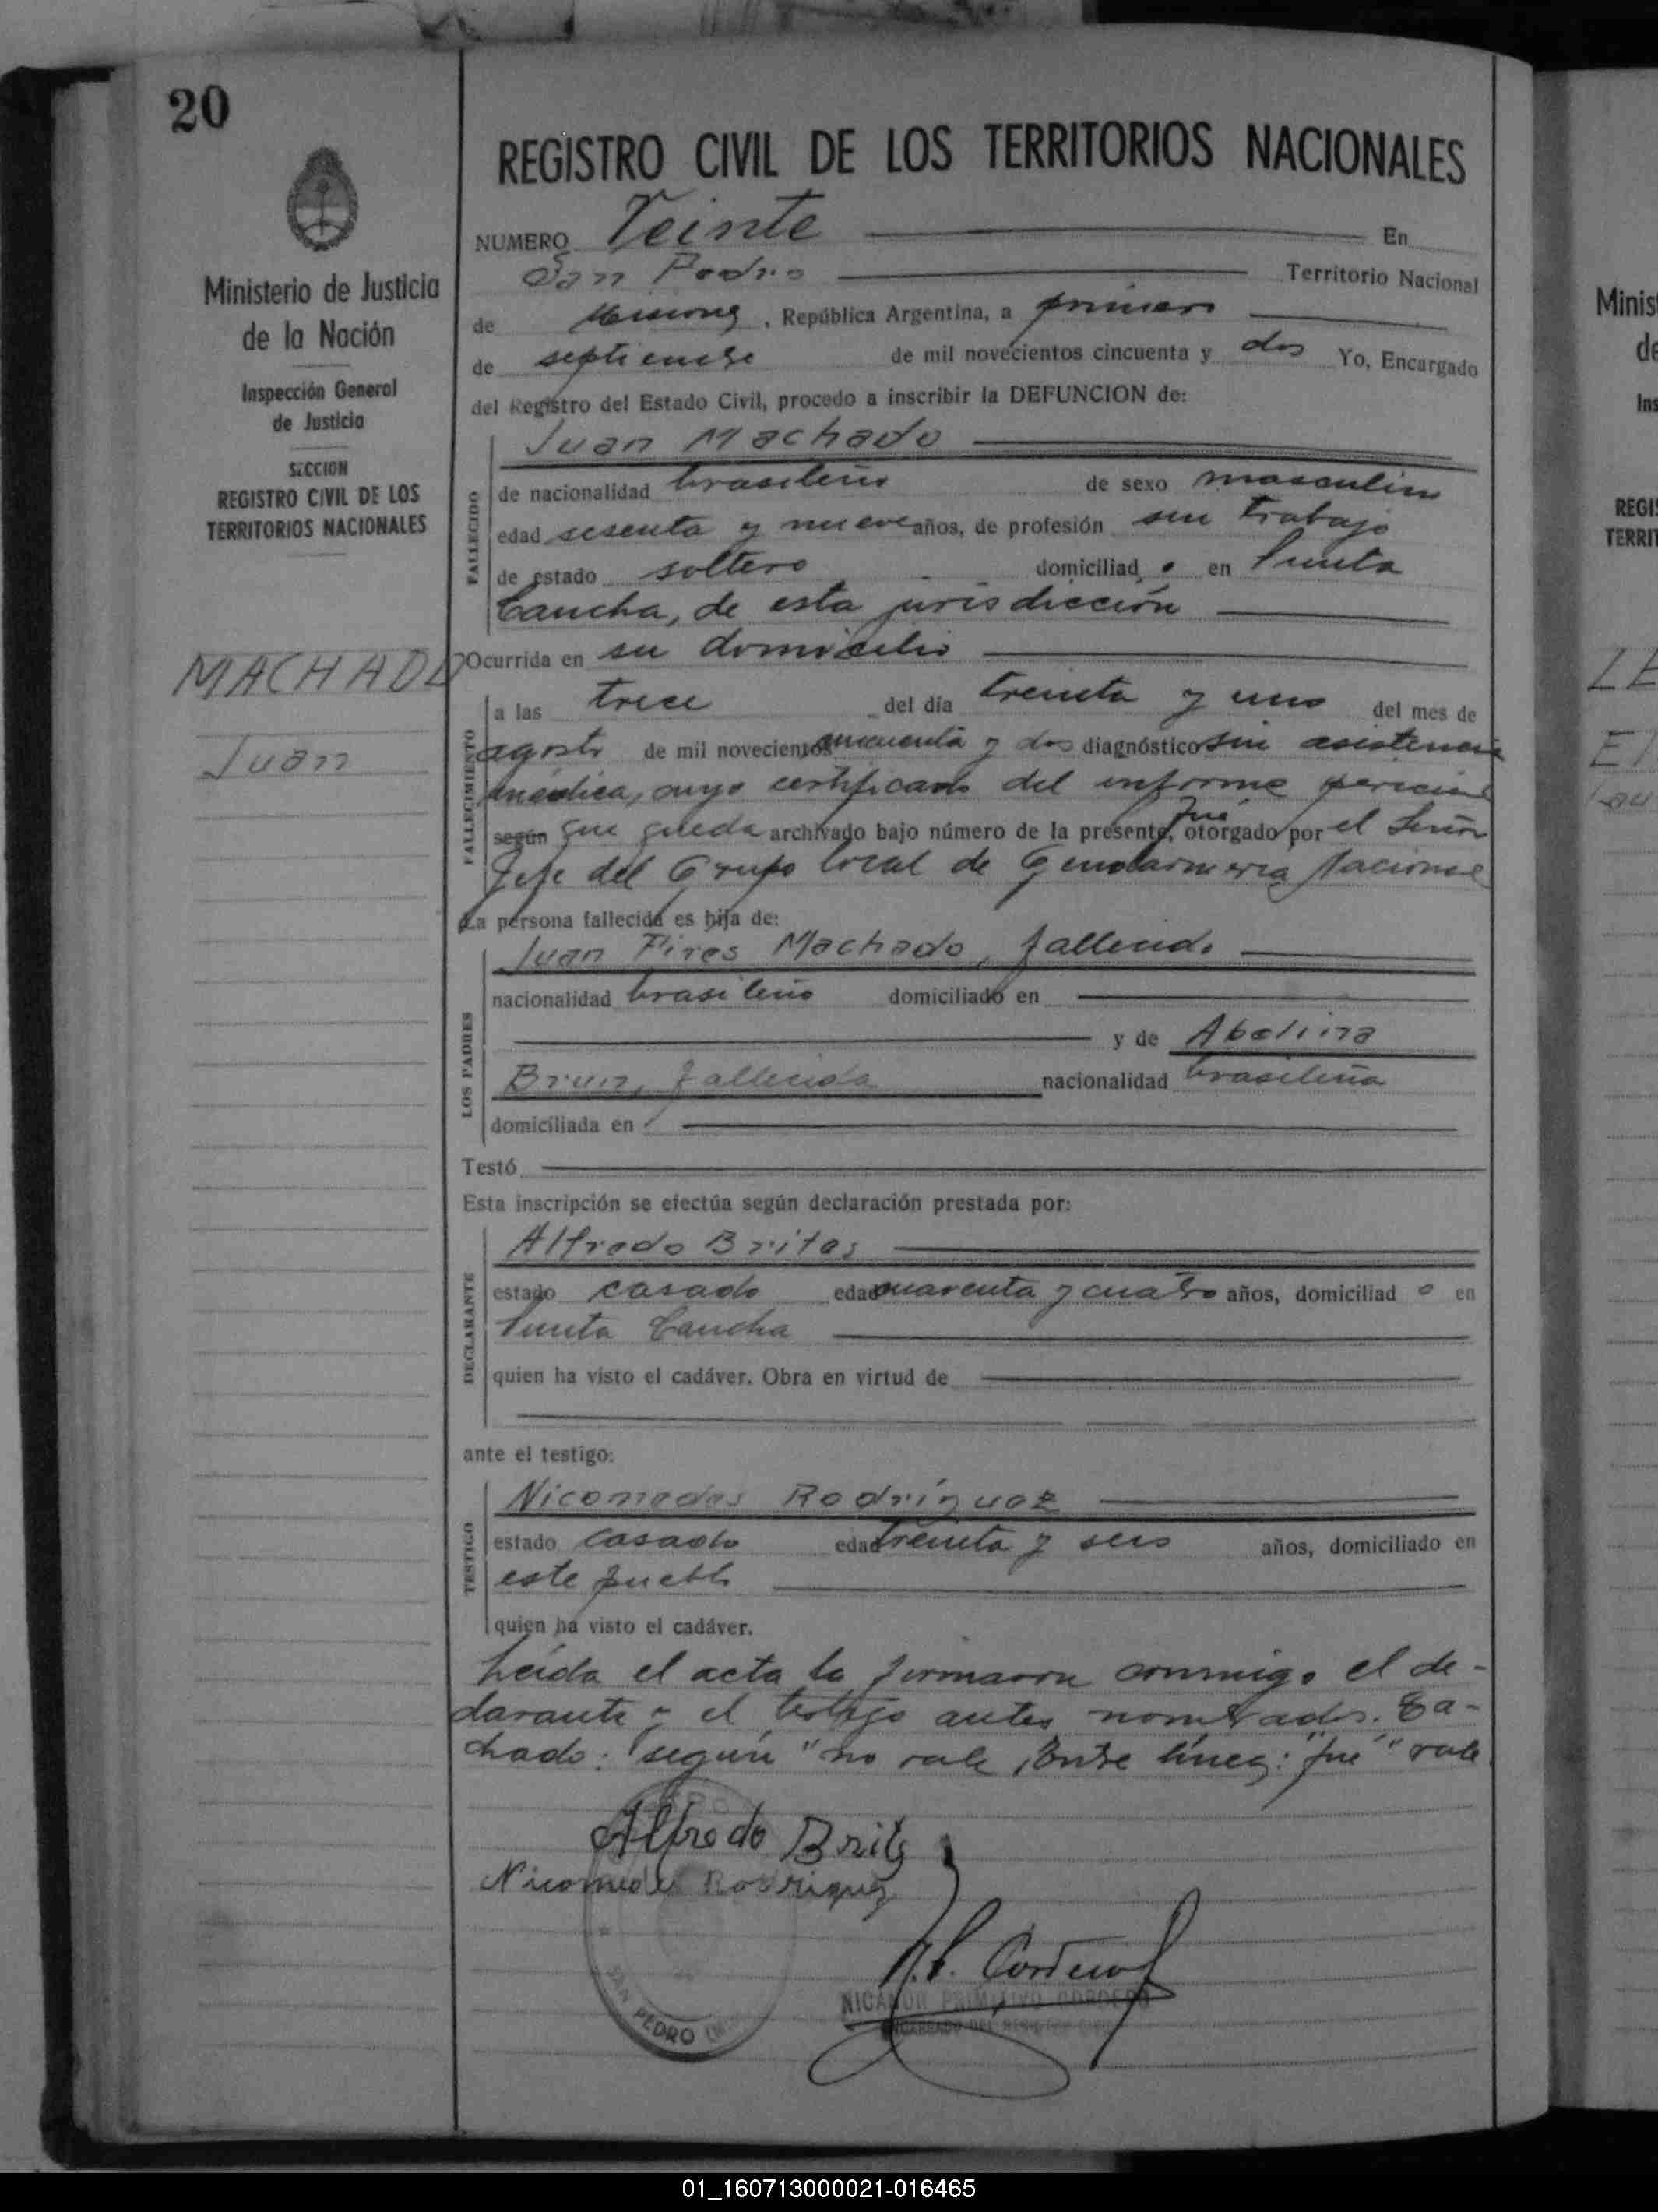 20
Ministerio de Justicia
de la Nación
Inspección General
de Justicia
SECCION
REGISTRO CIVIL DE LOS
TERRITORIOS NACIONALES
MACHADO
Juan
REGISTRO CIVIL DE LOS TERRITORIOS NACIONALES
NUMERO Veinte En
San Pedro Territorio Nacional
de Misiones, República Argentina, a primero
de septiembre de mil novecientos cincuenta y dos Yo, Encargado
del Registro del Estado Civil, procedo a inscribir la DEFUNCION de:
Juan Machado
FALLECIDO
de nacionalidad brasileño de sexo masculino
edad sesenta y nueve años, de profesión sin trabajo
de estado soltero domiciliad o en Punta
Cancha, de esta jurisdicción
Ocurrida en su domicilio
FALLECIMIENTO
a las trece del día treinta y uno del mes de
agosto de mil novecientos cincuenta y dos diagnóstico sin asistencia
médica, cuyo certificado del informe pericial
fué
según que queda archivado bajo número de la presente, otorgado por el Señor
Jefe del Grupo local de Gendarmeria Nacional
La persona fallecida es hija de:
LOS PADRES
Juan Pires Machado, fallecido
nacionalidad brasileño domiciliado en
y de Abelina
Brun, fallecida nacionalidad brasileña
domiciliada en
Testó
Esta inscripción se efectúa según declaración prestada por:
DECLARANTE
Alfredo Brites
estado casado edad cuarenta y cuatro años, domiciliad o en
Punta Cancha
quien ha visto el cadáver. Obra en virtud de
ante el testigo:
TESTIGO
Nicomedes Rodríguez
estado casado edad treinta y seis años, domiciliado en
este pueblo
quien ha visto el cadáver.
Leída el acta la firmaron conmigo el de-
clarante y el testigo antes nombrados. Ta-
chado: "según" no vale, Entre línea: "fué" vale
Alfredo Brites
Nicomedes Rodriguez
N. P. Cordero
NICANOR PRIMITIVO CORDERO
ENCARGADO DEL REGISTRO CIVIL
SAN PEDRO
Minis
de
Ins
REGIS
TERRIT
01_160713000021-016465